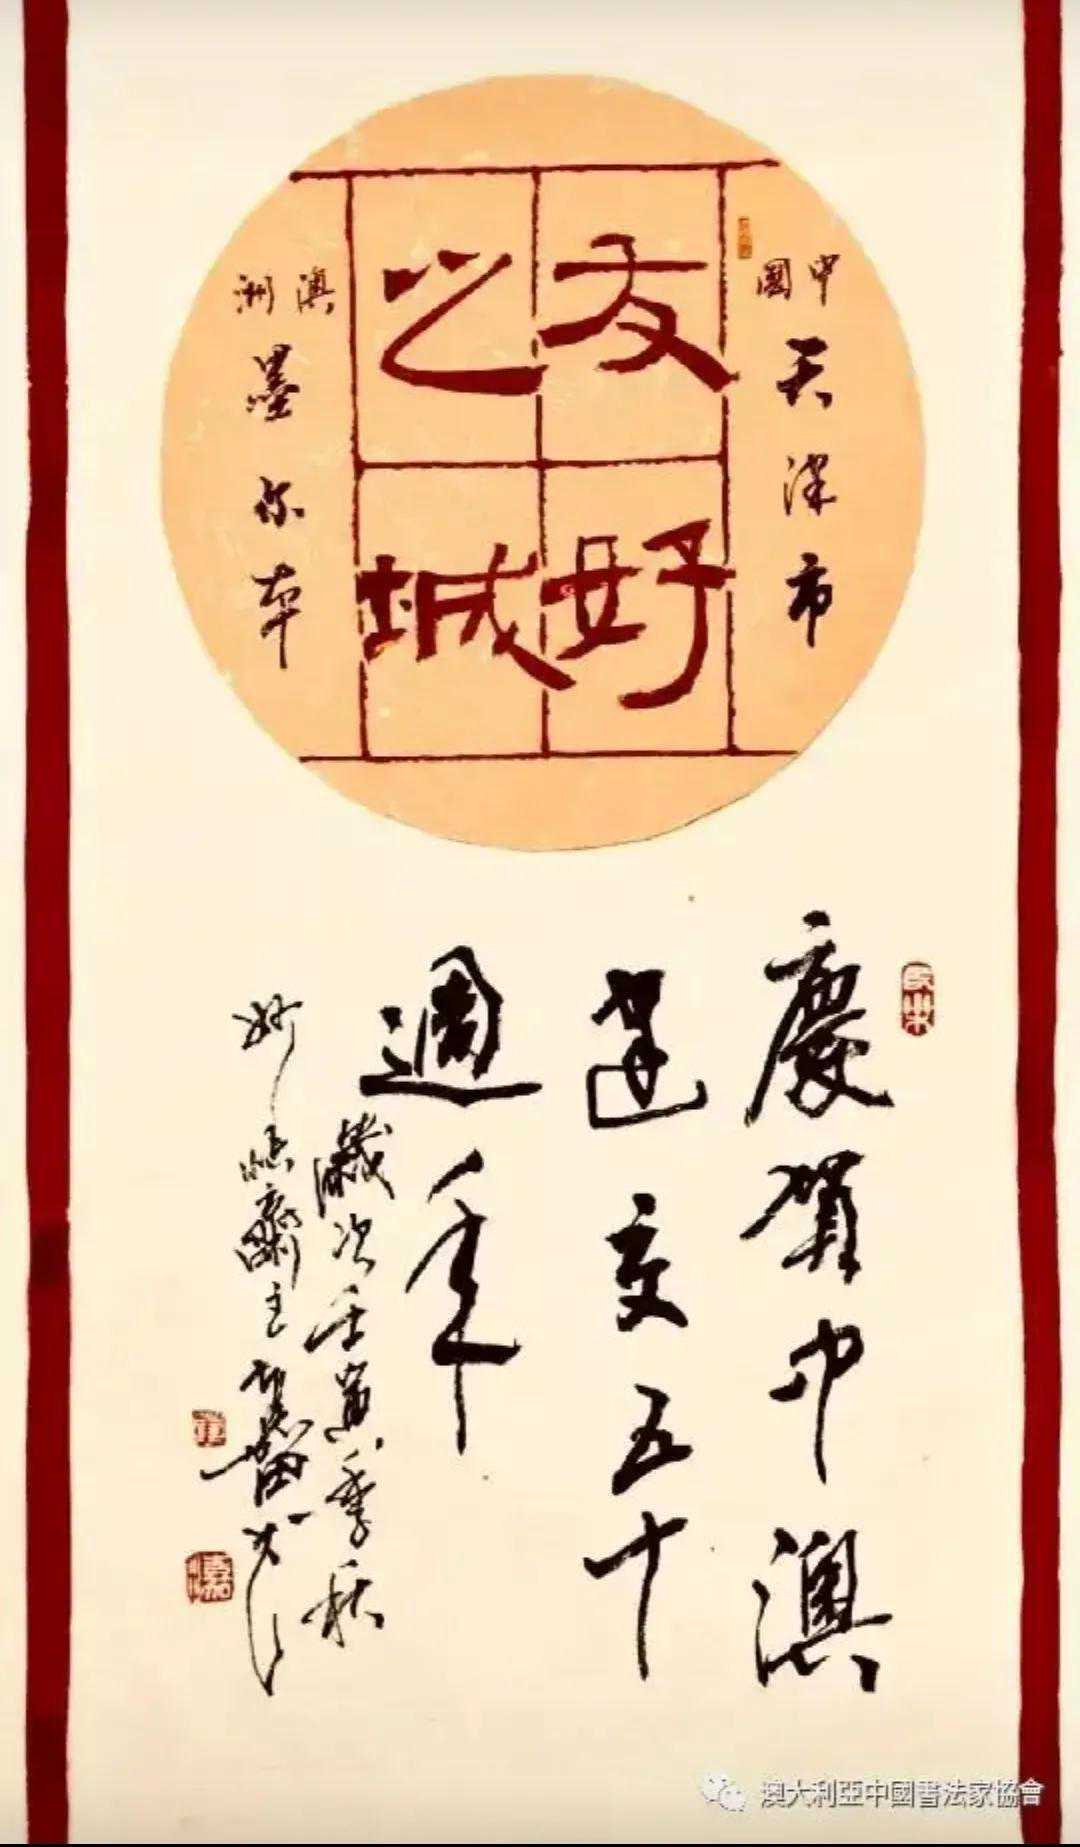 中國
天津市
友好
之城
澳洲
墨尔本
慶賀中澳
建交五十
週年
歲次壬寅季秋
澳大利亞中國書法家協會